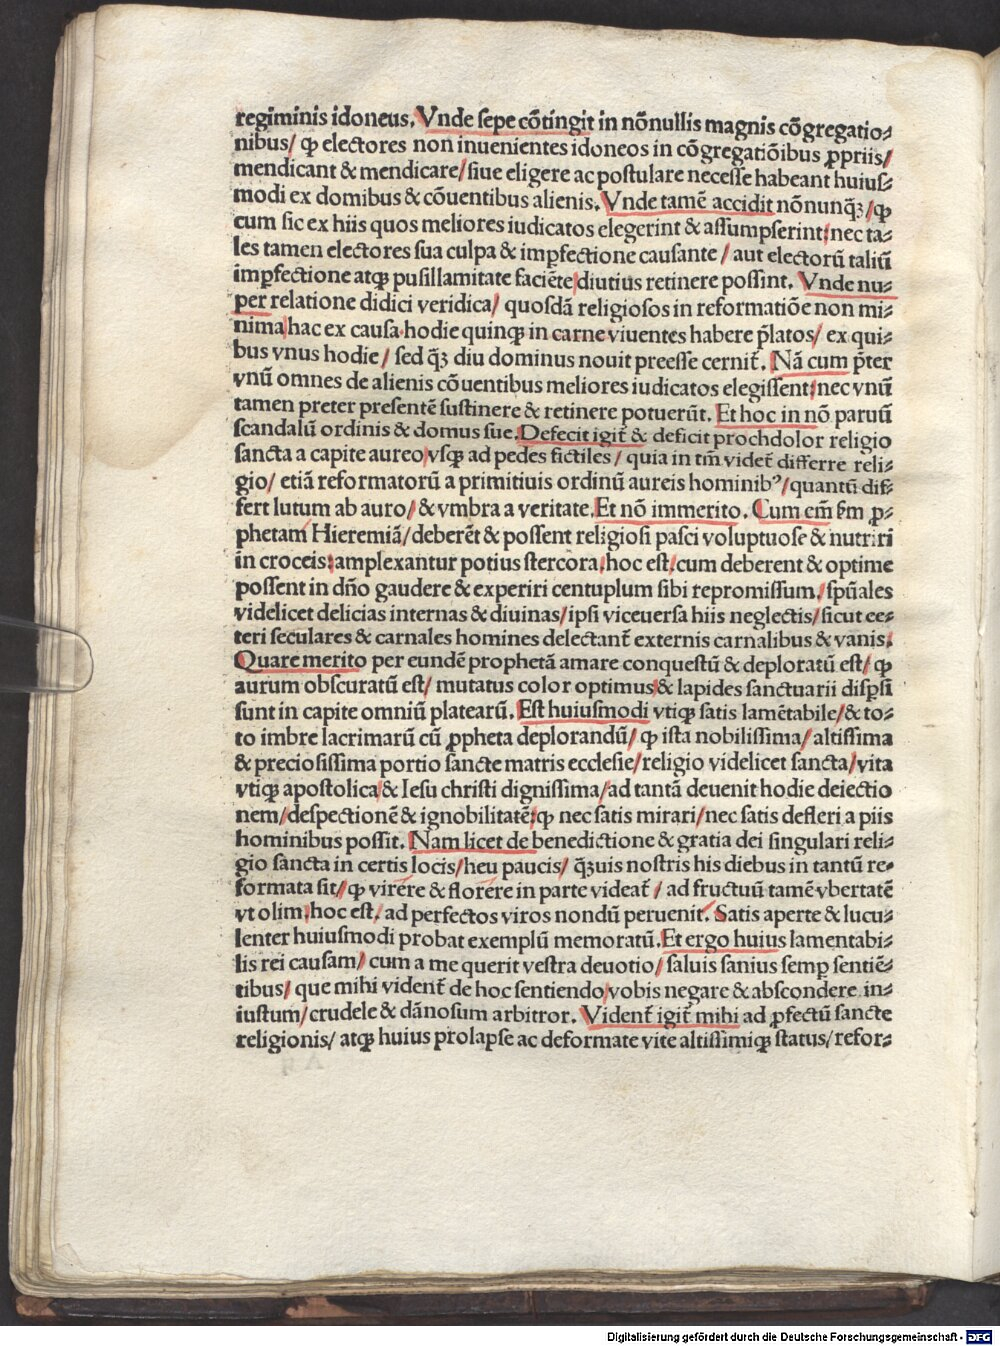 regiminis idoneus. Vnde sepe cōtingit in nōnullis magnis cōgregatio⸗
nibus/ ꝙ electores non inuenientes idoneos in cōgregatiōibus ꝓpriis/
mendicant & mendicare/ siue eligere ac postulare necesse habeant huius⸗
modi ex domibus & cōuentibus alienis. Vnde tamē accidit nōnunꝙ̄/ ꝙ
cum sic ex hiis quos meliores iudicatos elegerint & assumpserint: nec ta⸗
les tamen electores sua culpa & imꝑfectione causante / aut electorū taliū
imꝑfectione atqꝫ pusillamitate faciēte/ diutius retinere possint. Vnde nu⸗
per relatione didici veridica/ quosdā religiosos in reformatiōe non mi⸗
nima/ hac ex causa hodie quinqꝫ in carne viuentes habere p̄latos/ ex qui⸗
bus vnus hodie / sed qꝫ̄ diu dominus nouit preesse cernit̄. Nā cum p̄ter
vnū omnes de alienis cōuentibus meliores iudicatos elegissent: nec vnū
tamen preter presentē sustinere & retinere potuerūt. Et hoc in nō paruū
scandalū ordinis & domus sue. Defecit igit̄ & deficit prochdolor religio
sancta a capite aureo/ vsqꝫ ad pedes fictiles / quia in tm̄ videt̄ differre reli⸗
gio/ etiā reformatorū a primitiuis ordinū aureis hominibꝰ/ quantū dif⸗
fert lutum ab auro/ & vmbra a veritate. Et nō immerito. Cum em̄ ẜm ꝓ⸗
phetam Hieremiā/ deberēt & possent religiosi pasci voluptuose & nutriri
in croceis: amplexantur potius stercora/ hoc est/ cum deberent & optime
possent in dn̄o gaudere & experiri centuplum sibi repromissum/ spūales
videlicet delicias internas & diuinas/ ipsi viceuersa hiis neglectis/ sicut ce⸗
teri seculares & carnales homines delectant̄ externis carnalibus & vanis.
Quare merito per eundē prophetā amare conquestū & deploratū est/ ꝙ
aurum obscuratū est/ mutatus color optimus/ & lapides sanctuarii disꝑsi
sunt in capite omniū platearū. Est huiusmodi vtiqꝫ satis lamētabile/ & to⸗
to imbre lacrimarū cū ꝓpheta deplorandū/ ꝙ ista nobilissima/ altissima
& preciosissima portio sancte matris ecclesie/ religio videlicet sancta/ vita
vtiqꝫ apostolica/ & Iesu christi dignissima/ ad tantā deuenit hodie deiectio
nem/ despectionē & ignobilitatē: ꝙ nec satis mirari/ nec satis defleri a piis
hominibus possit. Nam licet de benedictione & gratia dei singulari reli⸗
gio sancta in certis locis/ heu paucis/ qꝫ̄uis nostris his diebus in tantū re⸗
formata sit/ ꝙ virere & florere in parte videat̄ / ad fructuū tamē vbertatē
vt olim/ hoc est/ ad perfectos viros nondū peruenit. Satis aperte & lucu⸗
lenter huiusmodi probat exemplū memoratū. Et ergo huius lamentabi⸗
lis rei causam/ cum a me querit vestra deuotio/ saluis sanius semꝑ sentiē⸗
tibus/ que mihi vident̄ de hoc sentiendo/ vobis negare & abscondere in⸗
iustum/ crudele & dānosum arbitror. Vident̄ igit̄ mihi ad ꝓfectū sancte
religionis/ atqꝫ huius prolapse ac deformate vite altissimiqꝫ status/ refor⸗
Digitalisierung gefördert durch die Deutsche Forschungsgemeinschaft - DFG